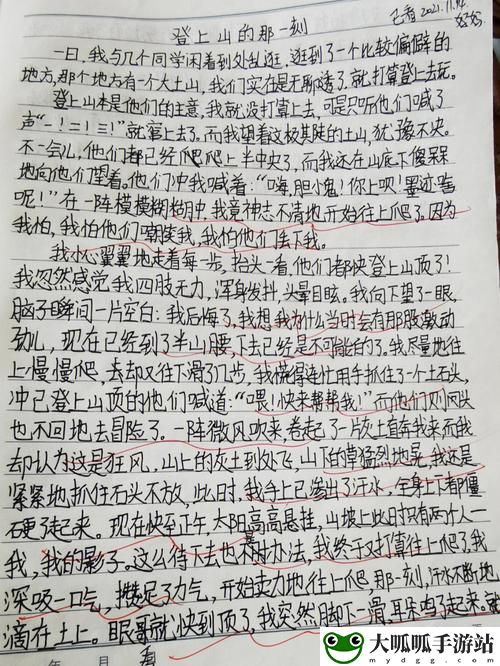 已看 2021.11.14
好好
登上山的那一刻
一日，我与几个同学闲着到处乱逛，逛到了一个比较偏僻的
地方，那个地方有一个大土山，我们实在是无聊透了，就打算登上去玩。
登上山本是他们的主意，我就没打算上去，可是只听他们喊了
声“一！二！三！”就窜上去了。而我望着这极其陡的土山，犹豫不决。
不一会儿，他们都已经爬爬上半中央了，而我还在山底下傻呆呆
地向他们望着。他们冲我喊着：“嗨，胆小鬼！你上呗！墨迹啥
呢！”在一阵模模糊糊中，我竟神志不清地开始往上爬了。因为
我怕，我怕他们嘲笑我，我怕他们丢下我。
我小心翼翼地走着每一步，抬头一看，他们都快登上山顶了！
我忽然感觉我四肢无力，浑身发抖，头晕目眩。我向下望了一眼，
脑子瞬间一片空白：我后悔了，我想我为什么当时会有那股激动
劲儿，现在已经到了半山腰，下去已经是不可能的了。我尽量地往
上慢慢爬，去却又往下滑了几步，我慌得连忙用手抓住了一个土石头，
冲已登上山顶的他们喊道：“喂！快来帮帮我！”而他们则头
也不回地去冒险了。一阵微风吹来，卷起了一片灰土直奔我来而我
却认为这是狂风，山上的灰土到处飞，山下的草猛烈地晃，我还是
紧紧地抓住石头不放，此时，我手上已渗出了汗水，全身上下都僵
硬了起来。现在快至正午，太阳高高悬挂，山坡上此时只有两个人—
我，我的影子。这么待下去也不是办法，我终于打算往上爬了。我
深吸一口气，攒足了力气，开始卖力地往上爬，那一刻，汗水不断地
滴在土上。眼看就快到顶了，我突然脚下一滑，耳朵鸣了起来。就
年 月 看
大呱呱手游站
mydgg.com